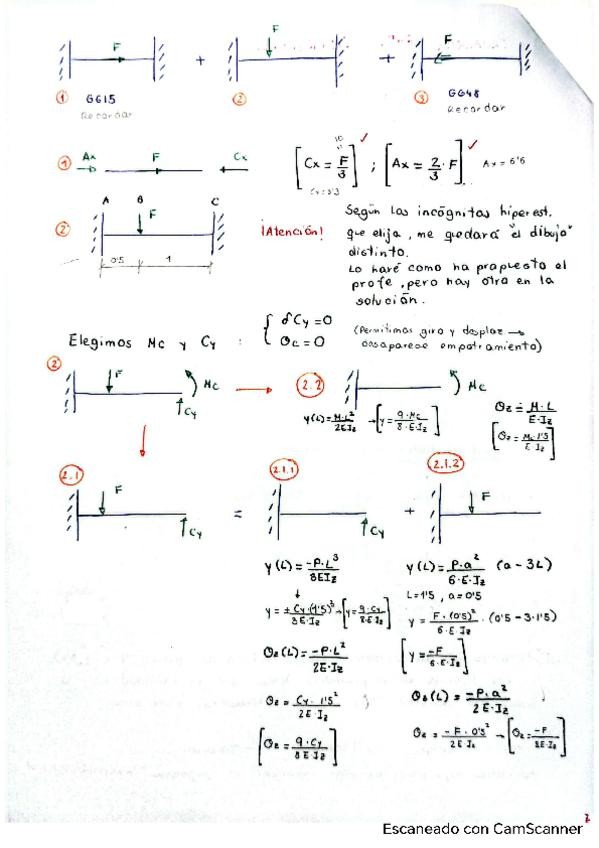 F + F + F
① GG15 ② ③ GG48
Recordar Recordar
① Ax F Cx [Cx = F/3] ✓ ; [Ax = 2/3 · F] ✓ Ax = 6'6
10
Cx = 3'3
A B C
② F
0'5 1
¡Atención!
Según las incógnitas hiperest.
que elija, me quedará "el dibujo"
distinto.
Lo haré como ha propuesto el
profe, pero hay otra en la
solución.
Elegimos Mc y Cy : { δCy = 0
θc = 0
(Permitimos giro y desplaz →
desaparece empotramiento)
② F Mc Cy → 2.2 Mc
y(L) = M·L²/2EIz → [y = 9·Mc/8·E·Iz]
θz = M·L/E·Iz
[θz = Mc·1'5/E·Iz]
2.1 F Cy = 2.1.1 Cy + 2.1.2 F
y(L) = -P·L³/3EIz
y = + Cy·(1'5)³/3E·Iz → [y = 9·Cy/8·E·Iz]
θz(L) = -P·L²/2E·Iz
θz = Cy·1'5²/2E·Iz
[θz = 9·Cy/8E·Iz]
y(L) = P·a²/6·E·Iz (a - 3L)
L = 1'5, a = 0'5
y = F·(0'5)²/6·E·Iz · (0'5 - 3·1'5)
[y = -F/6·E·Iz]
θz(L) = -P·a²/2E·Iz
θz = -F·0'5²/2E·Iz → [θz = -F/8E·Iz]
2
Escaneado con CamScanner